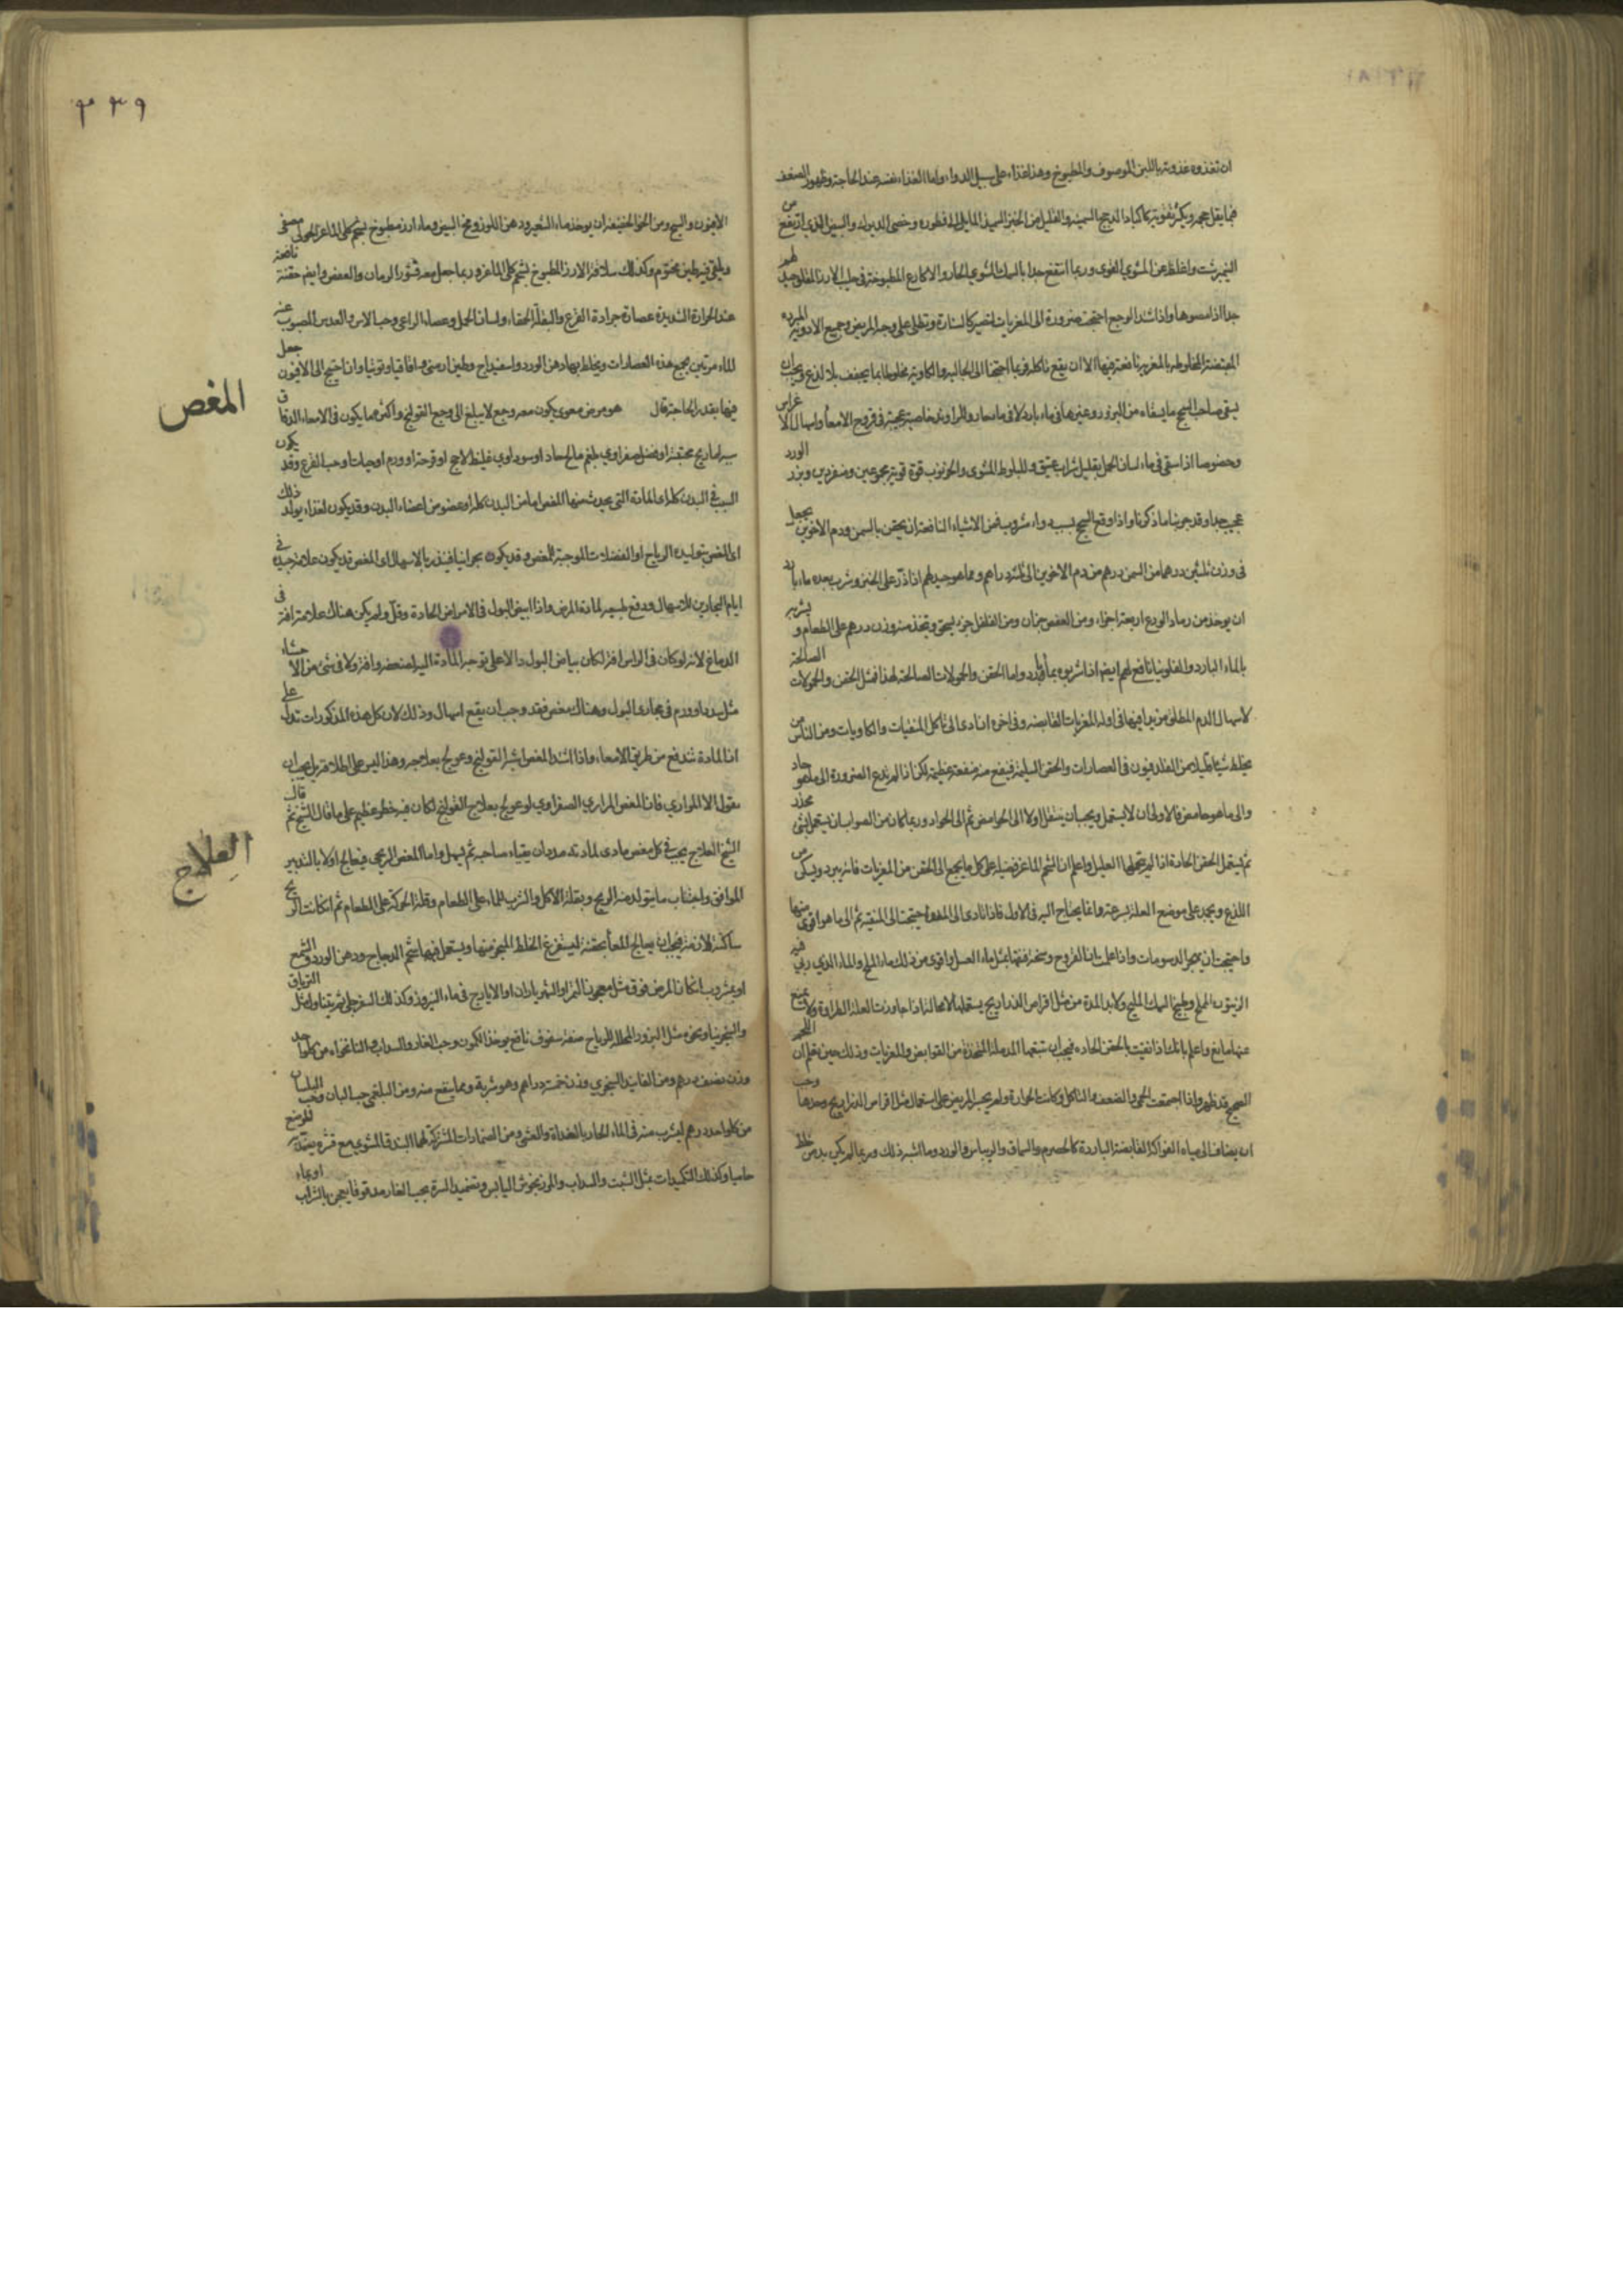 ان تغذوه غذوته باللبن الموصوف والمطبوخ وهذا غذاء على سبيل الدواء واما الغذاء نفسه عند الحاجة وظهور الضعف
فما يقل حجمه ويكثر تغذيته كاكباد الدجاج السمينة والقليل من الخبز السميذ وخصى الديوك والبيض الذي ارتفع من
النيمبرشت وانحط عن المشوي القوي وربما انتفع جدا بالسمك المشوي الحار والاكارع المطبوخة في حليب الارز المقلو جيد لهم
جدا اذا مصوها واذا اشتد الوجع احتجت ضرورة الى المغريات لتصير كالستارة وتطلى على وجه المريض وجميع الادوية المبردة
القابضة المخلوطة بالمغرية نافعة فيها الا ان يقع تاكل فربما احتجنا الى الجالية والكاوية مخلوطة بما يجفف بلا لذع ويجب ان
يسقى صاحب السحج ما يسقاه من البزور وغيرها في ماء بارد لا في ماء حار وللراوند خاصية عجيبة في قروح الامعاء واسهال الاغراس
وخصوصا اذا سقي في ماء لسان الحمل بقليل شراب عتيق وللبلوط المشوى والخرنوب قوة قوية مجموعين ومفردين وبزر الورد
عجيب جدا وقد جربناه ما ذكرنا واذا وقع السحج بسبب دواء مشروب فمن الاشياء النافعة ان يحقن بالسمن ودم الاخوين يجعل
في وزن ثلثين درهما من السمن درهم من دم الاخوين الى ثلثة دراهم ومما هو جيد لهم اذا ذر على الخبز وشرب بعده ماء بارد
ان يوخذ من رماد الودع اربعة اجزاء ومن العفص جزان ومن الفلفل جزء يسحق ويتخذ منه وزن درهم على الطعام ويشربه
بالماء البارد والفلونيا نافع لهم ايضا اذا شربوه بماء بارد واما الحقن والحمولات الصالحة لهذا فمثل الحقن والحمولات الصالحة
لاسهال الدم المطلق من يدافيها في اوله المغريات القابضة وفي اخره ان ادى الى تاكل المنقيات والكاويات ومن الناس من
يخلط شيئا قليلا من القلدفيون في العصارات والحقن السليمة فينفع منه منفعة عظيمة لكن اذا لم تدع الضرورة الى ما هو حاد
والى ما هو حامض فالاولى ان لا يستعمل ويجب ان ينتقل اولا الى الحوامض ثم الى الحواد وربما كان من الصواب ان يستعمل شئ مخدر
ثم يستعمل الحقن الحادة اذا لم يحتملها العليل واعلم ان شحم الماعز فضيلة على كل ما يجمع الى الحقن من المغريات فانه يبرد ويسكن من
اللذع ويجمد على موضع العلة بسرعة وانما يحتاج اليه في الاول فاذا تادى الى العفن احتجت الى المنقية ثم الى ما هو اقوى منها
واحتجت ان تهجر الدسومات واذا علمت ان القروح وسخة فنقها بمثل ماء العسل واقوى من ذلك ماء الملح والماء الذي ربي فيه
الزيتون المملح وطبيخ السمك المليح ولا بد المدة من مثل اقراص الذراريح يستعملها لا محالة اذا جاوزت العلة الطراوة ولا يمنع
عنها مانع واعلم بانك اذا نقيت بالحقن الحادة فيجب ان تتبعها المدملة المتخذة من القوابض والمغريات وذلك حين تعلم ان اللحم
الصحيح قد ظهر واذا اجتمعت الحمى والضعف والتاكل وكانت الحرارة ولم يجسر المريض على استعمال مثل اقراص الذراريح وحدها وجب
ان يضاف الى مياه الفواكه القابضة الباردة كالحصرم والسماق والريباس والورد وما اشبه ذلك وربما لم يكن بد من خلط
٣٣٩
الافيون والبنج ومن الحقن الخفيفة ان يوخذ ماء الشعير ودهن اللوز ومح البيض وماء ارز مطبوخ بشحم كلى الماعز الحولى مصفى
ويلقى فيه طين مختوم وكذلك سلاقة الارز المطبوخ بشحم كلى الماعز وربما جعل معه قشور الرمان والعفص وايضا حقنة نافعة
عند الحرارة الشديدة عصارة جرادة القرع والبقلة الحمقاء ولسان الحمل وعصاء الراعي وحب الاس والعدس المصبوب عنه
الماء مرتين يجمع هذه العصارات ويخلط بها دهن الورد واسفيداج وطين ارمني واقاقيا وتوتيا وان احتيج الى الافيون جعل
فيها بقدر الحاجة قال هو مرض معوي يكون معه وجع لا يبلغ الى وجع القولنج واكثر ما يكون في الامعاء الدقاق
المغص
سببه اما ريح محتقنة او فضل صفراوي بلغم مالح حاد او سوداوي غليظ لاحج او قرحة او ورم او حيات او حب القرع وقد يكون
السبب في البدن كله اى المادة التى يحدث منها المغص اما من البدن كله او عضو من اعضاء البدن وقد يكون لغذاء يولد ذلك
اى المغص بتوليده الرياح او الفضلات الموجبة للمغص وقد يكون بحرانيا فينذر بالاسهال اى المغص قد يكون علامة جيدة في
ايام البحارين للاسهال ودفع طبيعي لمادة المرض واذا ابيض البول في الامراض الحادة وقل ولم يكن هناك علامة افة في
الدماغ لانه لو كان في الراس افة لكان بياض البول دالا على توجه المادة اليه لضعفه وافة ولا في شئ من الاحشاء
مثل سدد او ورم في مجاري البول وهناك مغص فقد وجب ان يقع اسهال وذلك لان كل هذه المذكورات تدل على
ان المادة تندفع من طريق الامعاء واذا اشتد المغص اشبه القولنج وعولج بعلاجه وهذا ليس على اطلاقه بل يجب ان
يقول الا المراري فان المغص المراري الصفراوي لو عولج بعلاج القولنج لكان فيه خطر عظيم على ما قال الشيخ ثم قال
العلاج
الشيخ العلاج يجب في كل مغص مادى لمادته مدد ان يقياء صاحبه ثم يسهل واما المغص الريحى فيعالج اولا بالتدبير
الموافق واجتناب ما يتولد منه الريح وبقلة الاكل والشرب للماء على الطعام وقلة الحركة على الطعام ثم ان كانت الريح
ساكنة لازمة فيجب ان يعالج المعا بحقنة ليستفرغ الخلط المتبخر منها ويستعمل فيها شحم الدجاج ودهن الورد والشمع
او بمشروب ان كان المرض فوق مثل معجون التمر او الشهرياران او الايارج في ماء البزور وكذلك السفرجلى ثم يتناول مثل الترياق
والسنجرنيا ونحوه مثل البزور المحللة للرياح صفة سفوف نافع يوخذ الكمون وحب الغار والسداب والنانخواه من كل واحد
وزن نصف درهم ومن الفانيذ السجزي وزن خمسة دراهم وهو شربة ومما ينفع منه ومن البلغمى حب البان وحب البلسان
من كل واحد درهم يشرب منه في الماء الحار بالغداة والعشى ومن الضمادات المشتركة لهما البندق المشوي مع قشره يضمد به الموضع
حاميا وكذلك التكميدات بمثل الشبت والسداب والمرزنجوش اليابس وتضميد السرة بحب الغار مدقوقا يعجن بالشراب او بماء